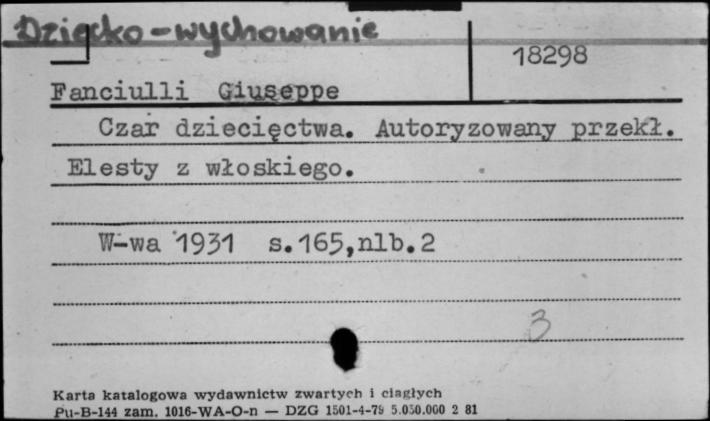 Dziecko-wychowanie
18298
Fanciulli Giuseppe
Czar dziecięctwa. Autoryzowany przekł.
Elesty z włoskiego.
W-wa 1931 s.165,nlb.2
3
Karta katalogowa wydawnictw zwartych i ciągłych
Pu-B-144 zam. 1016-WA-O-n — DZG 1501-4-79 5.050.000 2 81